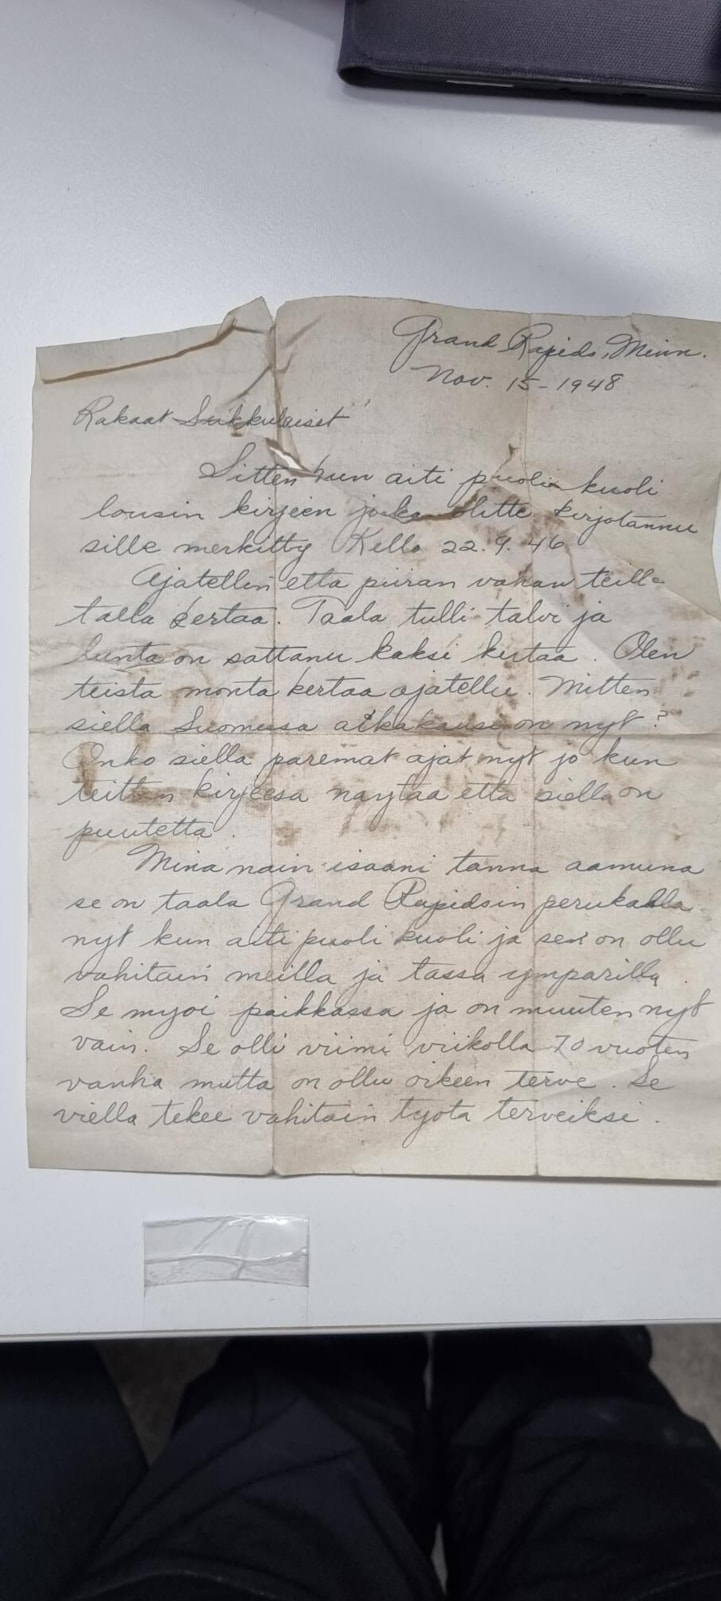 Grand Rapids, Minn.
Nov. 15-1948
Rakaat Seikkulaiset
Sitten kun aiti puoli kuoli
lousin kirjeen jonka olitte kirjotannu
sille merkitty Kello 22.9.46
Ajatellin etta piiran vahan teille
talla kertaa. Taala tulli talvi ja
lunta on sattanu kaksi kertaa. Olen
teista monta kertaa ajatellu. Mitten
siella Suomessa aikakausi on nyt?
Onko siella paremat ajat nyt jo kun
teitten kirjeesa naytaa etta siella on
puutetta.
Mina nain isaani tanna aamuna
se on taala Grand Rapidsin perukalla
nyt kun aiti puoli kuoli ja se on ollu
vahitain meilla ja tassa ymparilla.
Se myoi paikkassa ja on muuten nyt
vain. Se olli viimi viikolla 70 vuoten
vanha mutta on ollu oikeen terve. Se
viella tekee vahitain tyota terveiksi.